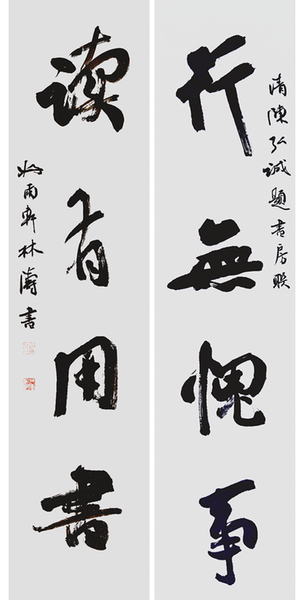 清陳弘诚題書房联
行無愧事
读有用書
雨軒林濤書